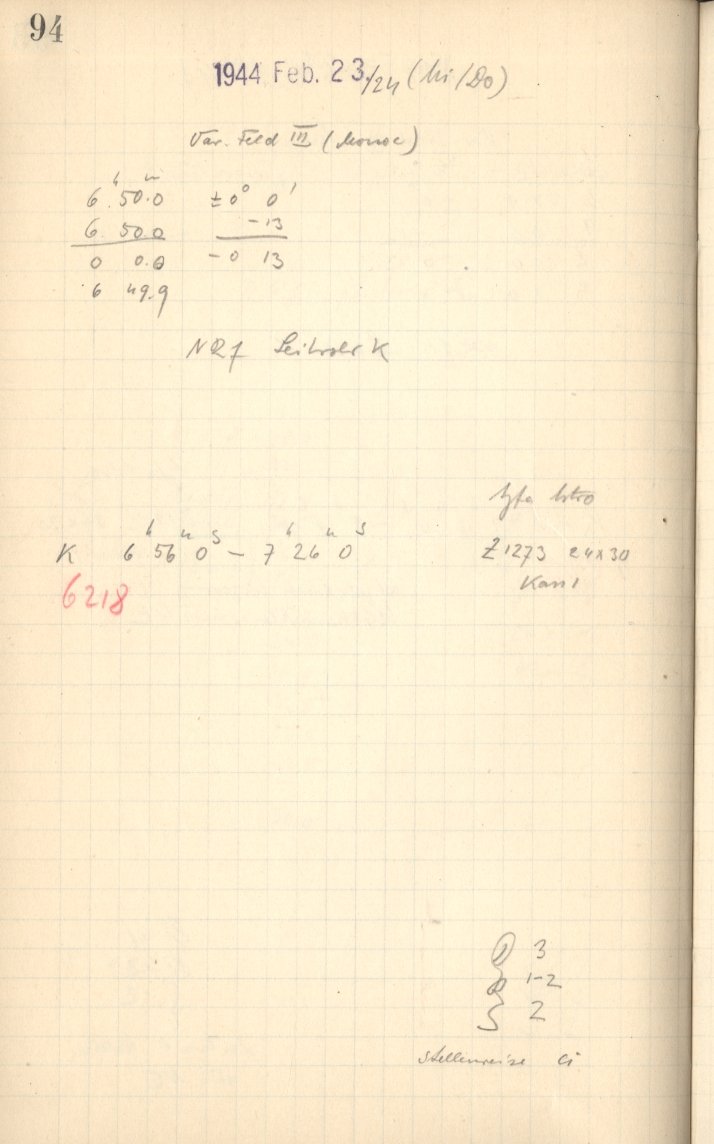 94
1944 Feb. 23./24 (Mi/Do)
Var. Feld III (Monoc)
6h 50m.0 ±0° 0'
6. 50.0 -13
0 0.0 -0 13
6 49.9
K
Agfa Astro
K 6h 56m 0s – 7h 26m 0s Z1273 24x30
6218 Kass 1
3
1-2
2
stellenweise Ci